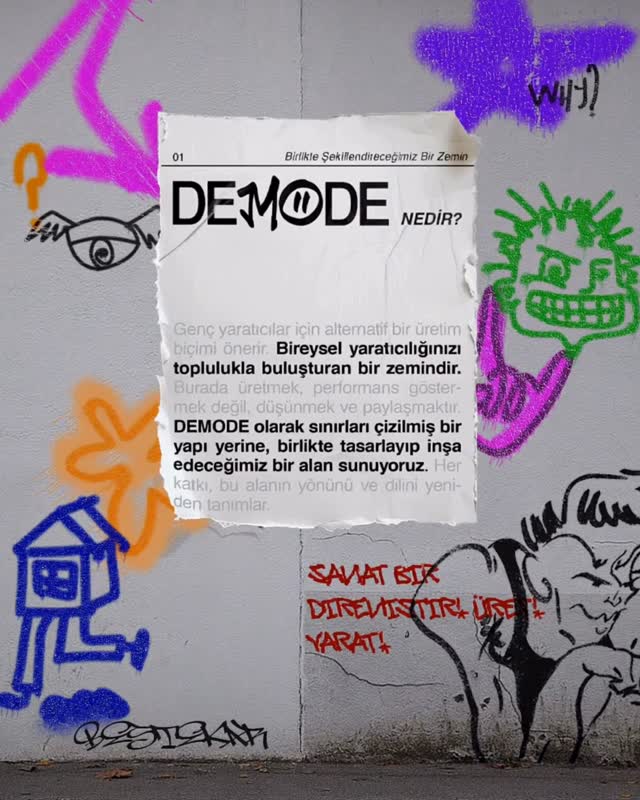 WHY?
?
01
Birlikte Şekillendireceğimiz Bir Zemin
DEMODE NEDİR?
Genç yaratıcılar için alternatif bir üretim
biçimi önerir. Bireysel yaratıcılığınızı
toplulukla buluşturan bir zemindir.
Burada üretmek, performans göster-
mek değil, düşünmek ve paylaşmaktır.
DEMODE olarak sınırları çizilmiş bir
yapı yerine, birlikte tasarlayıp inşa
edeceğimiz bir alan sunuyoruz. Her
katkı, bu alanın yönünü ve dilini yeni-
den tanımlar.
SANAT BIR
DIRENISTIR! ÜRET!
YARAT!
BESTEKAR